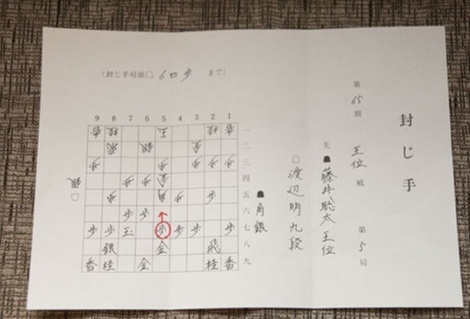 封じ手
第65期 王位戦 第5局
先 ▲ 藤井聡太王位
○ 渡辺明九段
▲ 角銀
(封じ手局面○ 6四歩 まで)
9 8 7 6 5 4 3 2 1
一
二
三
四
五
六
七
八
九
香 桂 王 桂 香
飛 銀 金
歩 歩
歩 歩 玉 歩 歩 歩 歩
銀 金 飛
香 桂 金 桂 香
○ 銀